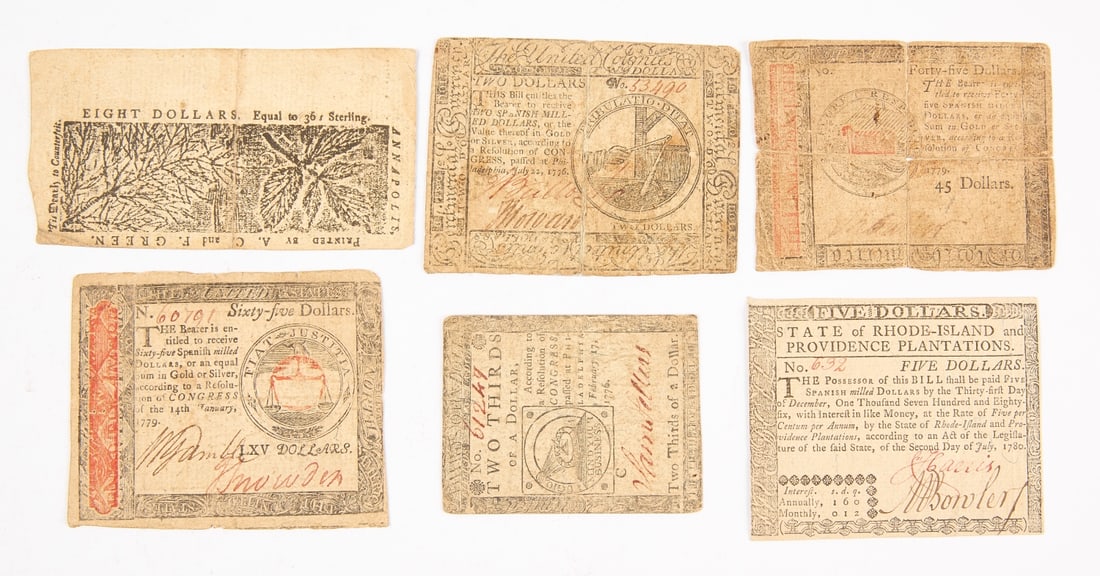 EIGHT DOLLARS. Equal to 36s Sterling.
To Death to Counterfeit.
ANNAPOLIS.
PRINTED BY A. C. and F. GREEN.
The United Colonies
TWO DOLLARS
No. 53490
THIS Bill entitles the
Bearer to receive
TWO SPANISH MILL-
ED DOLLARS, or the
Value thereof in Gold
or SILVER, according to
a Resolution of CON-
GRESS, passed at Phi-
ladelphia, July 22, 1776.
TRIBULATIO DITAT
TWO DOLLARS
No.
Forty-five Dollars.
THE Bearer is en-
titled to receive Forty-
five SPANISH MILLED
DOLLARS, or an equal
Sum in GOLD or SIL-
VER, according to a
Resolution of CONGRESS
1779.
45 Dollars.
THE UNITED STATES
N. 60791 Sixty-five Dollars.
THE Bearer is en-
titled to receive
Sixty-five Spanish milled
DOLLARS, or an equal
sum in Gold or Silver,
according to a Resolu-
tion of CONGRESS
of the 14th January,
1779.
FIAT JUSTITIA
LXV DOLLARS.
No.
TWO THIRDS
OF A DOLLAR,
According to
a Resolution of
CONGRESS,
passed at PHI-
LADELPHIA
February 17,
1776.
C
Two Thirds of a Dollar.
FIVE DOLLARS.
STATE of RHODE-ISLAND and
PROVIDENCE PLANTATIONS.
No. 632 FIVE DOLLARS.
THE POSSESSOR of this BILL shall be paid FIVE
SPANISH milled DOLLARS by the Thirty-first Day
of December, One Thousand Seven Hundred and Eighty-
six, with Interest in like Money, at the Rate of Five per
Centum per Annum, by the State of Rhode-Island and Pro-
vidence Plantations, according to an Act of the Legisla-
ture of the said State, of the Second Day of July, 1780.
Interest. s. d. q.
Annually, 1 6 0
Monthly, 0 1 2